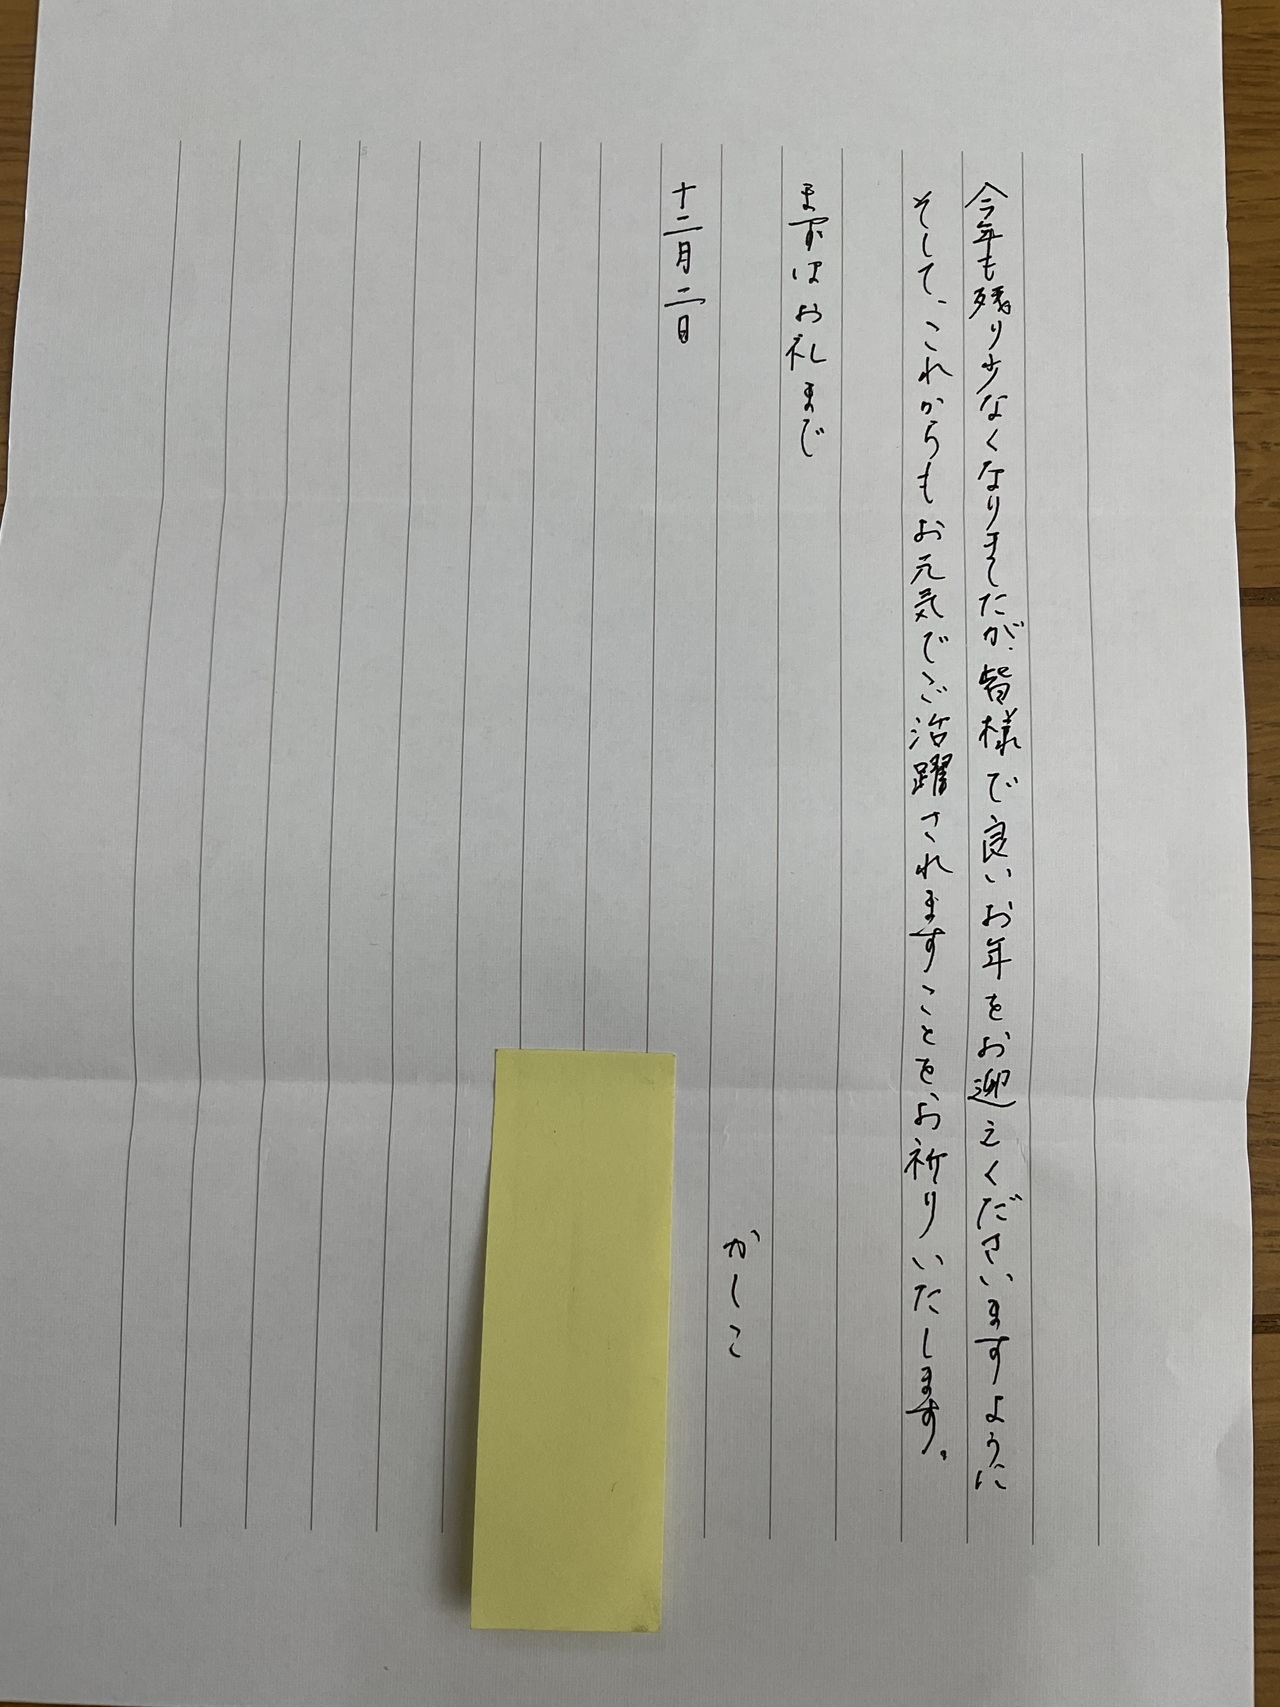 今年も残り少なくなりましたが、皆様で良いお年をお迎えくださいますように
そして、これからもお元気でご活躍されますことをお祈りいたします。
まずはお礼まで
かしこ
十二月二日